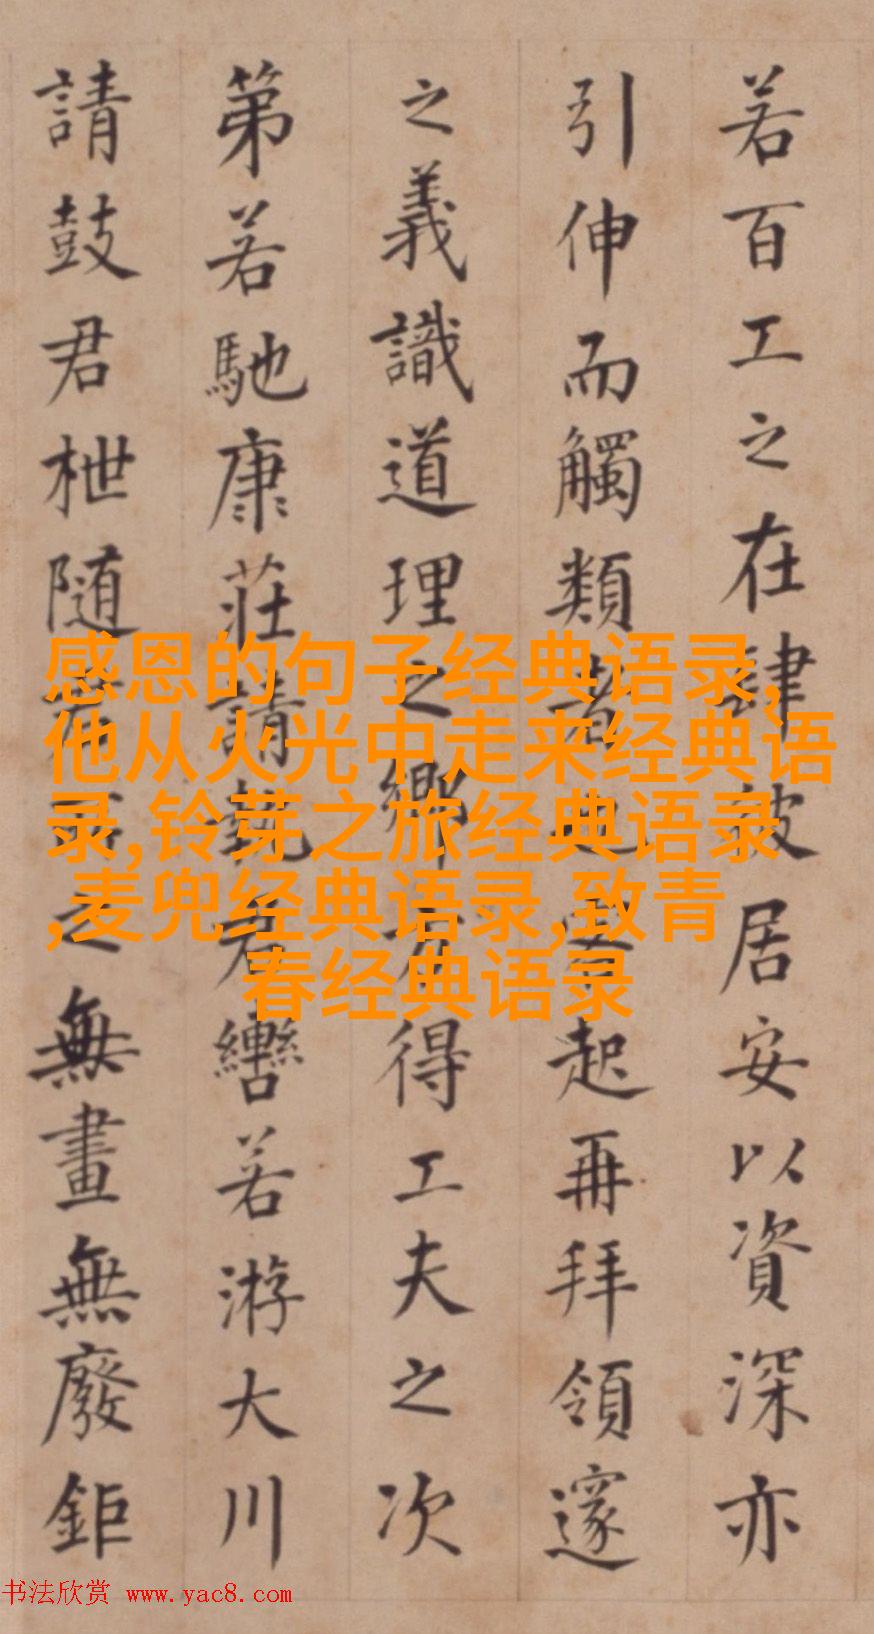 若百工之在肆彼居安以資深亦
引伸而觸類者客起再拜領邃
之義識道理之鄉方得工夫之次
第若馳康莊請執君轡若游大川
請鼓君枻随之無畫無廢鉅
感恩的句子经典语录,
他从火光中走来经典语
录,铃芽之旅经典语录
,麦兜经典语录,致青
春经典语录
书法欣赏 www.yac8.com